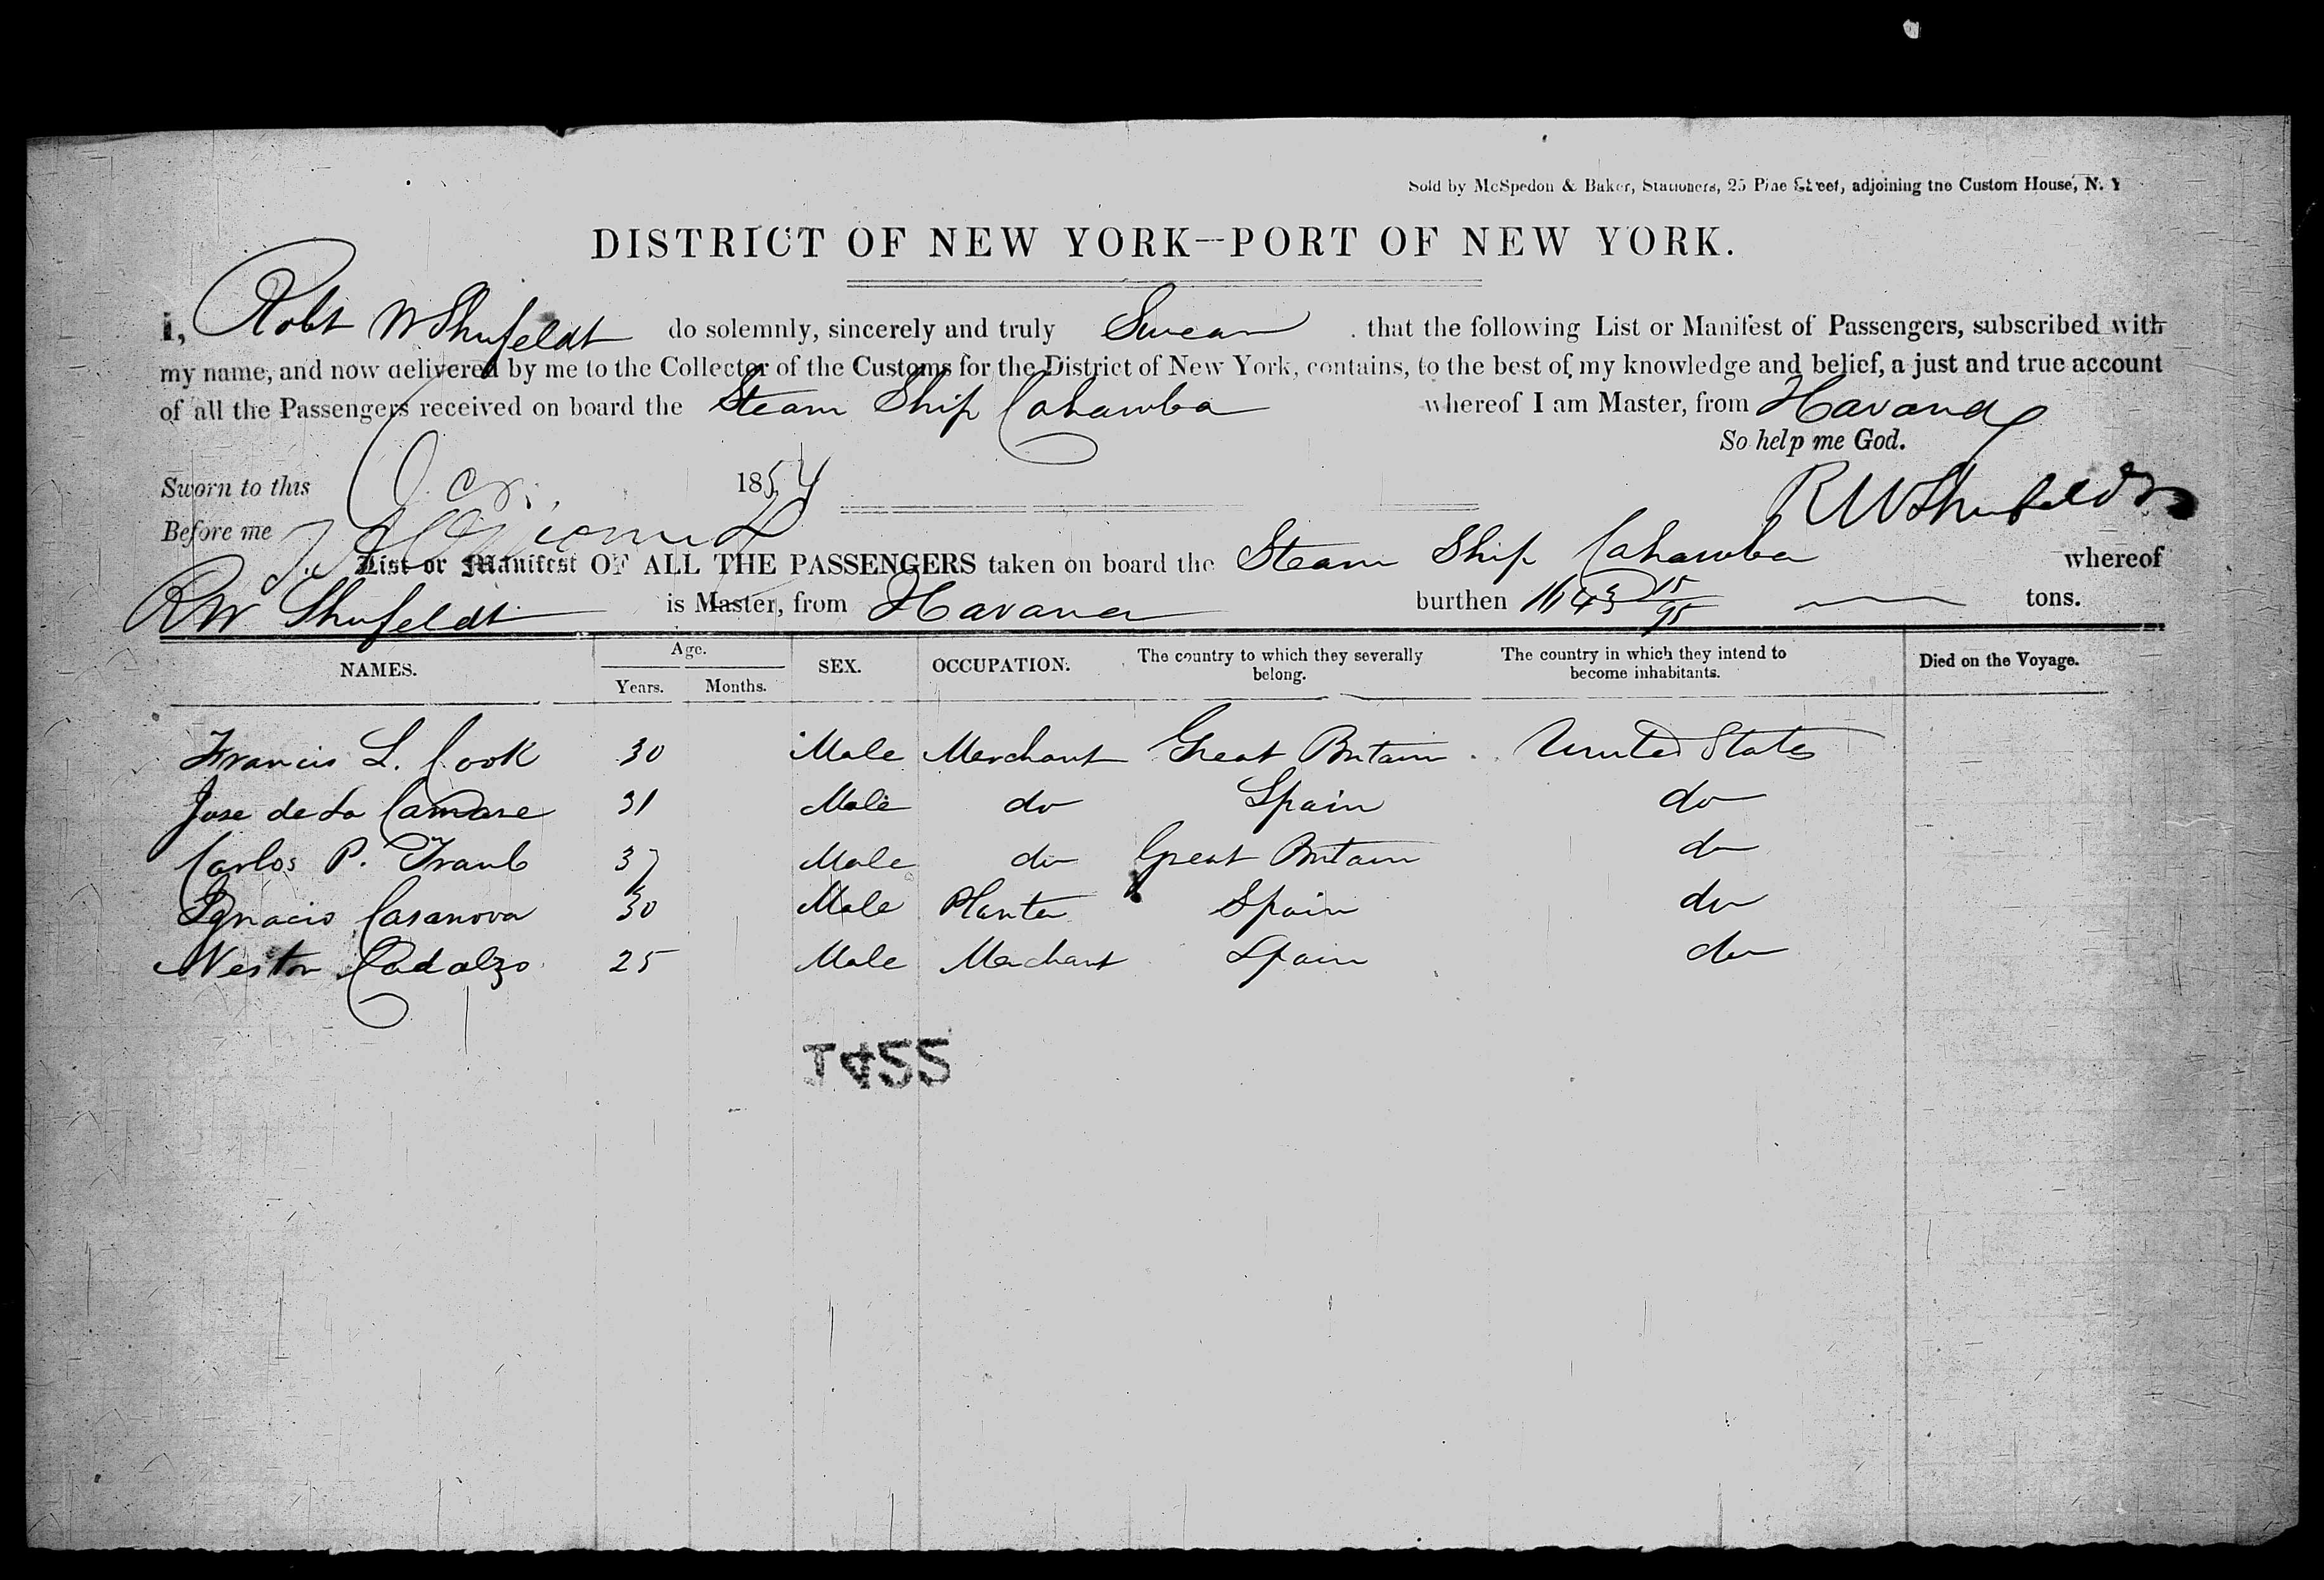 Sold by McSpedon & Baker, Stationers, 25 Pine Street, adjoining the Custom House, N. Y
DISTRICT OF NEW YORK—PORT OF NEW YORK.
I, Robt W Shufeldt do solemnly, sincerely and truly Swear that the following List or Manifest of Passengers, subscribed with
my name, and now delivered by me to the Collector of the Customs for the District of New York, contains, to the best of my knowledge and belief, a just and true account
of all the Passengers received on board the Steam Ship Cahawba whereof I am Master, from Havana
So help me God.
Sworn to this 1854
R W Shufeldt
Before me
List or Manifest OF ALL THE PASSENGERS taken on board the Steam Ship Cahawba whereof
R W Shufeldt is Master, from Havana burthen 1643 15/95 tons.
NAMES. Age. Years. Months. SEX. OCCUPATION. The country to which they severally belong. The country in which they intend to become inhabitants. Died on the Voyage.
Francis L. Cook 30 Male Merchant Great Britain United States
Jose de La 31 Male do Spain do
Carlos P. Traub 37 Male do Great Britain do
Ignacio Casanova 30 Male Planter Spain do
Nestor 25 Male Merchant Spain do